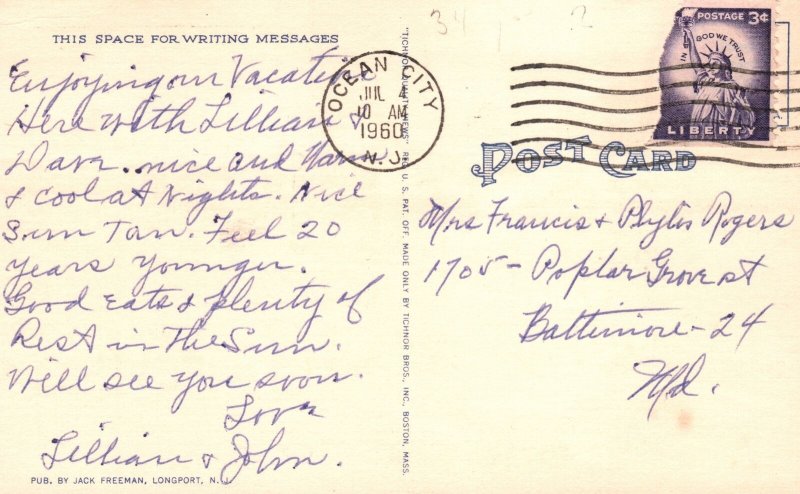 34 2
THIS SPACE FOR WRITING MESSAGES
Enjoying our Vacation
Here with Lillian &
Dave. nice and Warm
& cool at Nights. Nice
Sun Tan. Feel 20
years younger.
Good Eats & plenty of
Rest in The Sun.
Will see you soon.
Love
Lillian & John.
PUB. BY JACK FREEMAN, LONGPORT, N. J.
"TICHNOR QUALITY VIEWS" REG. U. S. PAT. OFF. MADE ONLY BY TICHNOR BROS., INC., BOSTON, MASS.
OCEAN CITY
JUL 4
10 AM
1960
N. J.
POSTAGE 3¢
IN GOD WE TRUST
LIBERTY
POST CARD
Mrs Francis & Phylis Rogers
1705 - Poplar Grove st
Baltimore - 24
Md.